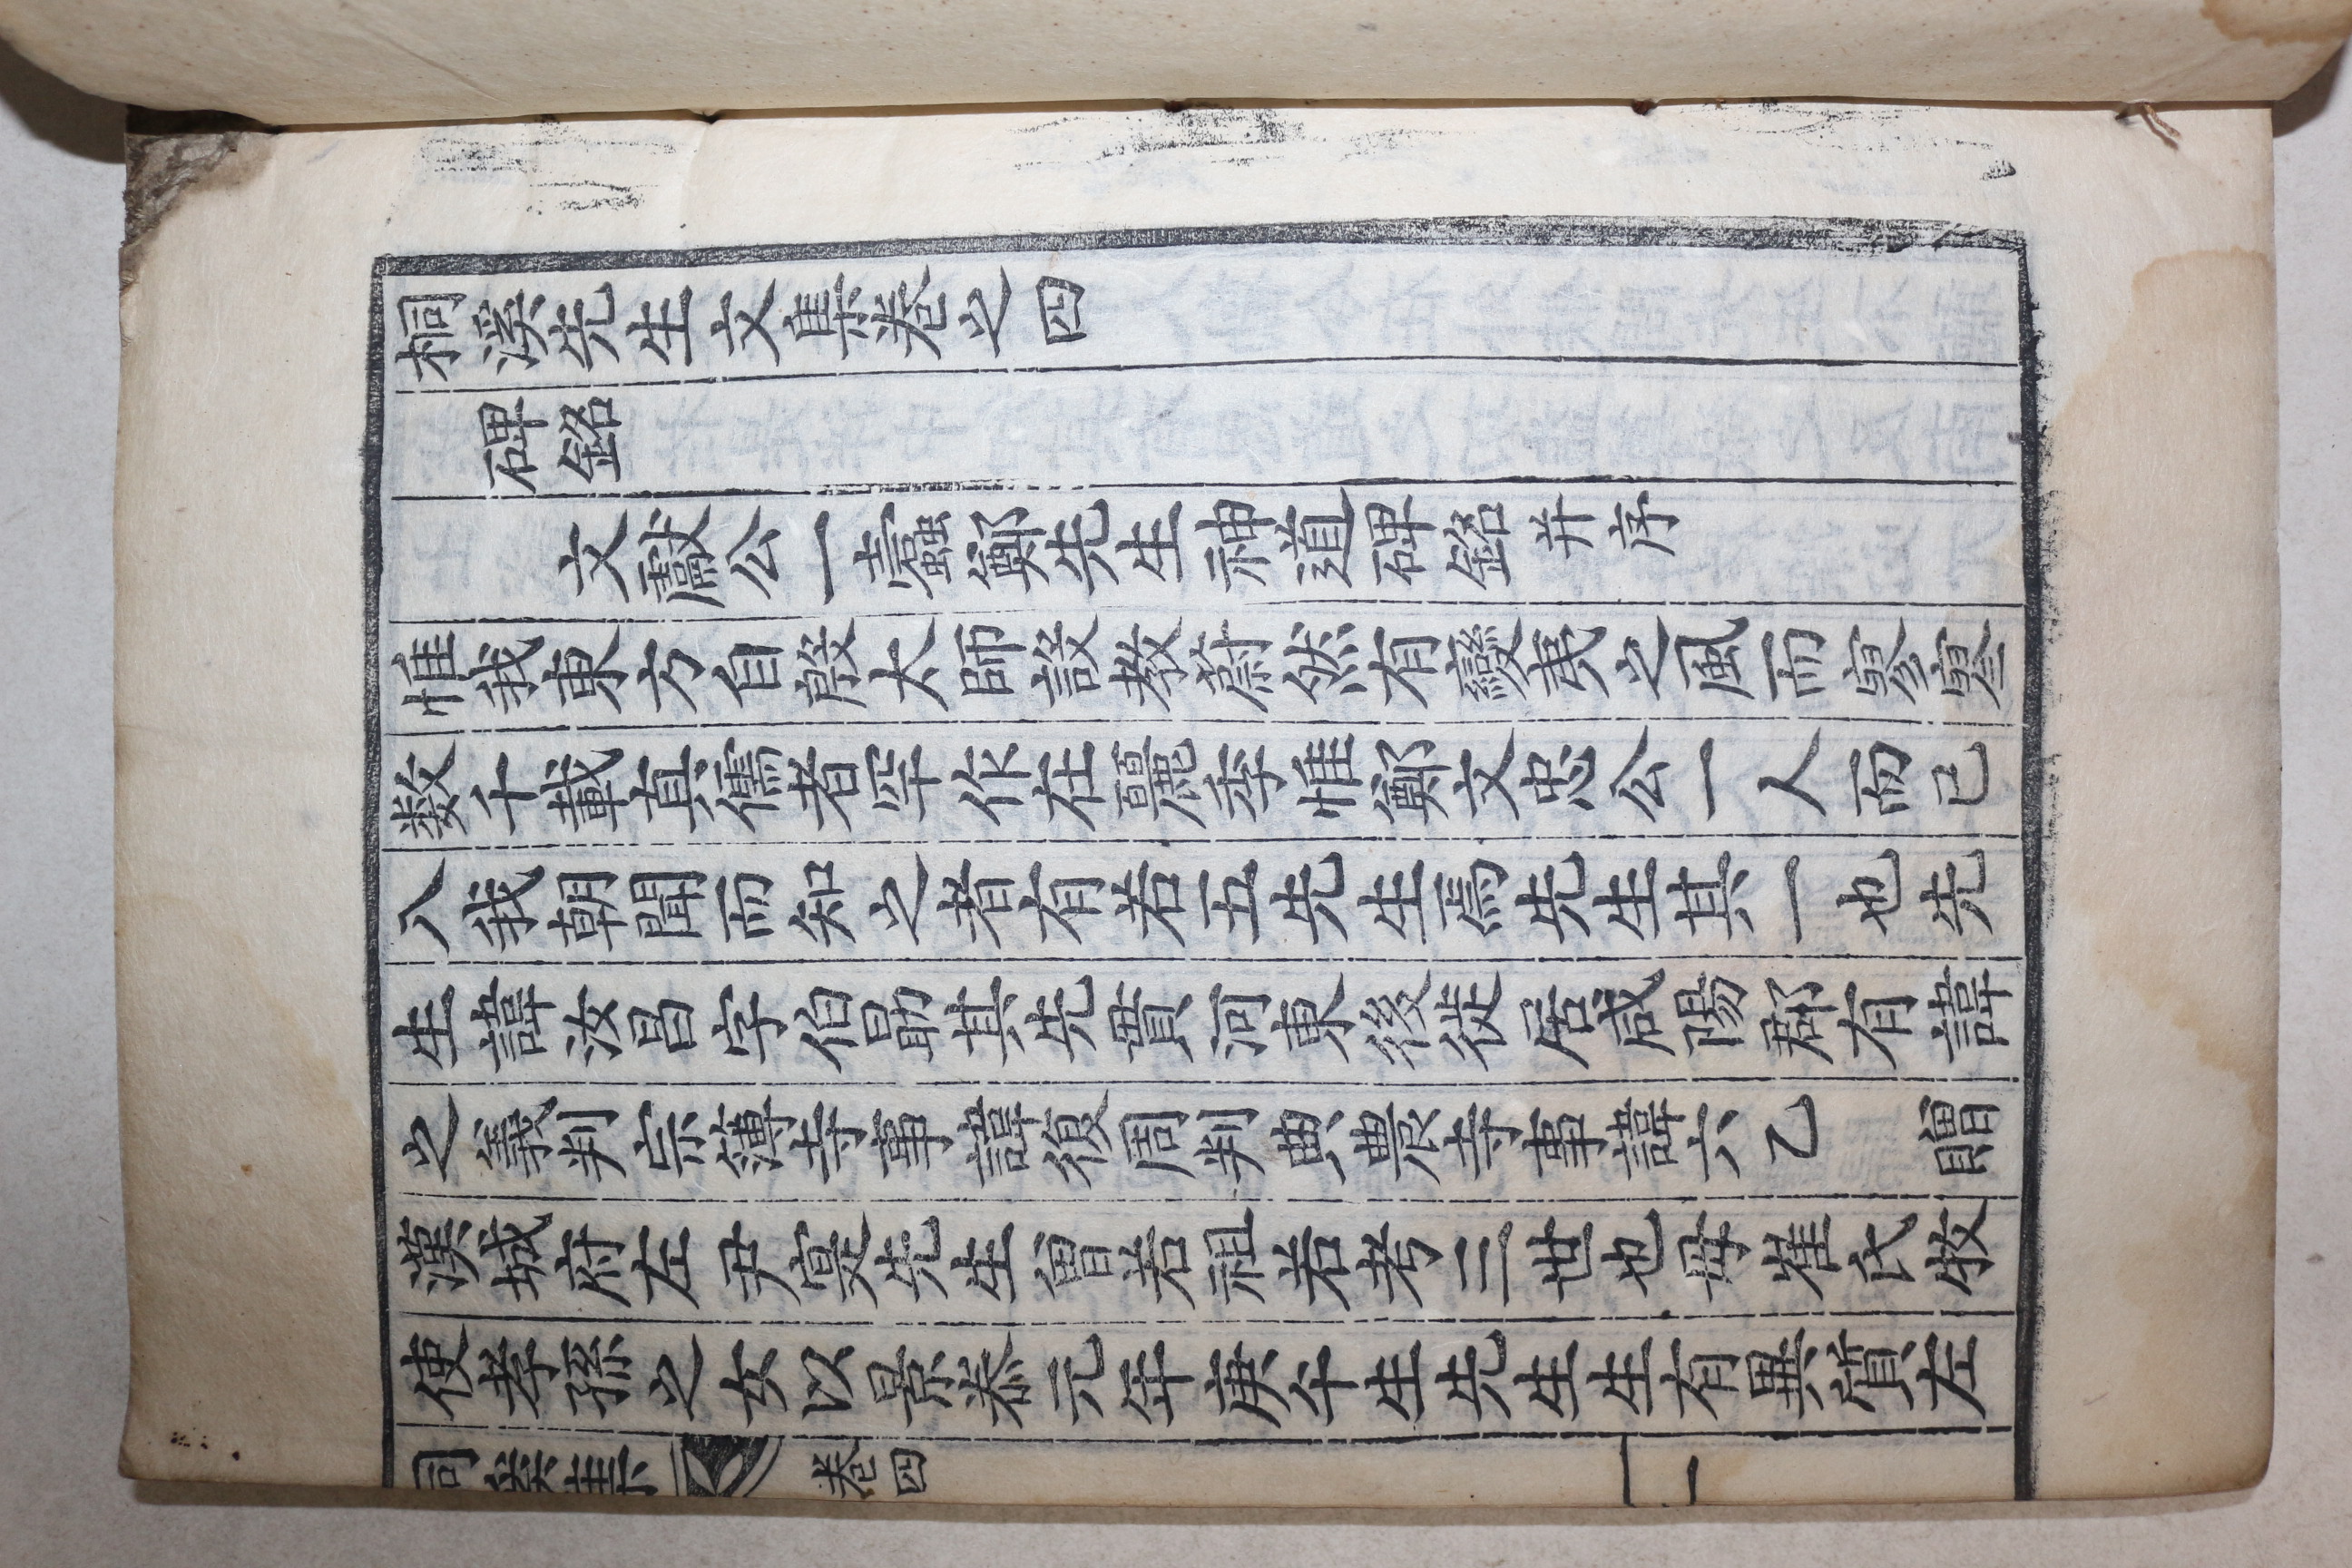 桐溪先生文集卷之四
碑銘
文獻公一蠹鄭先生神道碑銘并序
惟我東方自殷太師設敎蔚然有禮義之風而寥寥
數千載眞儒者罕作在麗季惟鄭文忠公一人而已
入我朝聞而知之者有若五先生焉先生其一也先
生諱汝昌字伯勗其先貫河東後徙居咸陽郡有諱
之義判宗簿寺事諱復周判典農寺事諱六乙　贈
漢城府左尹寔先生曾若祖若考三世也母崔氏牧
使孝孫之女以景泰元年庚午生先生生有異質左
桐溪集　卷四　一